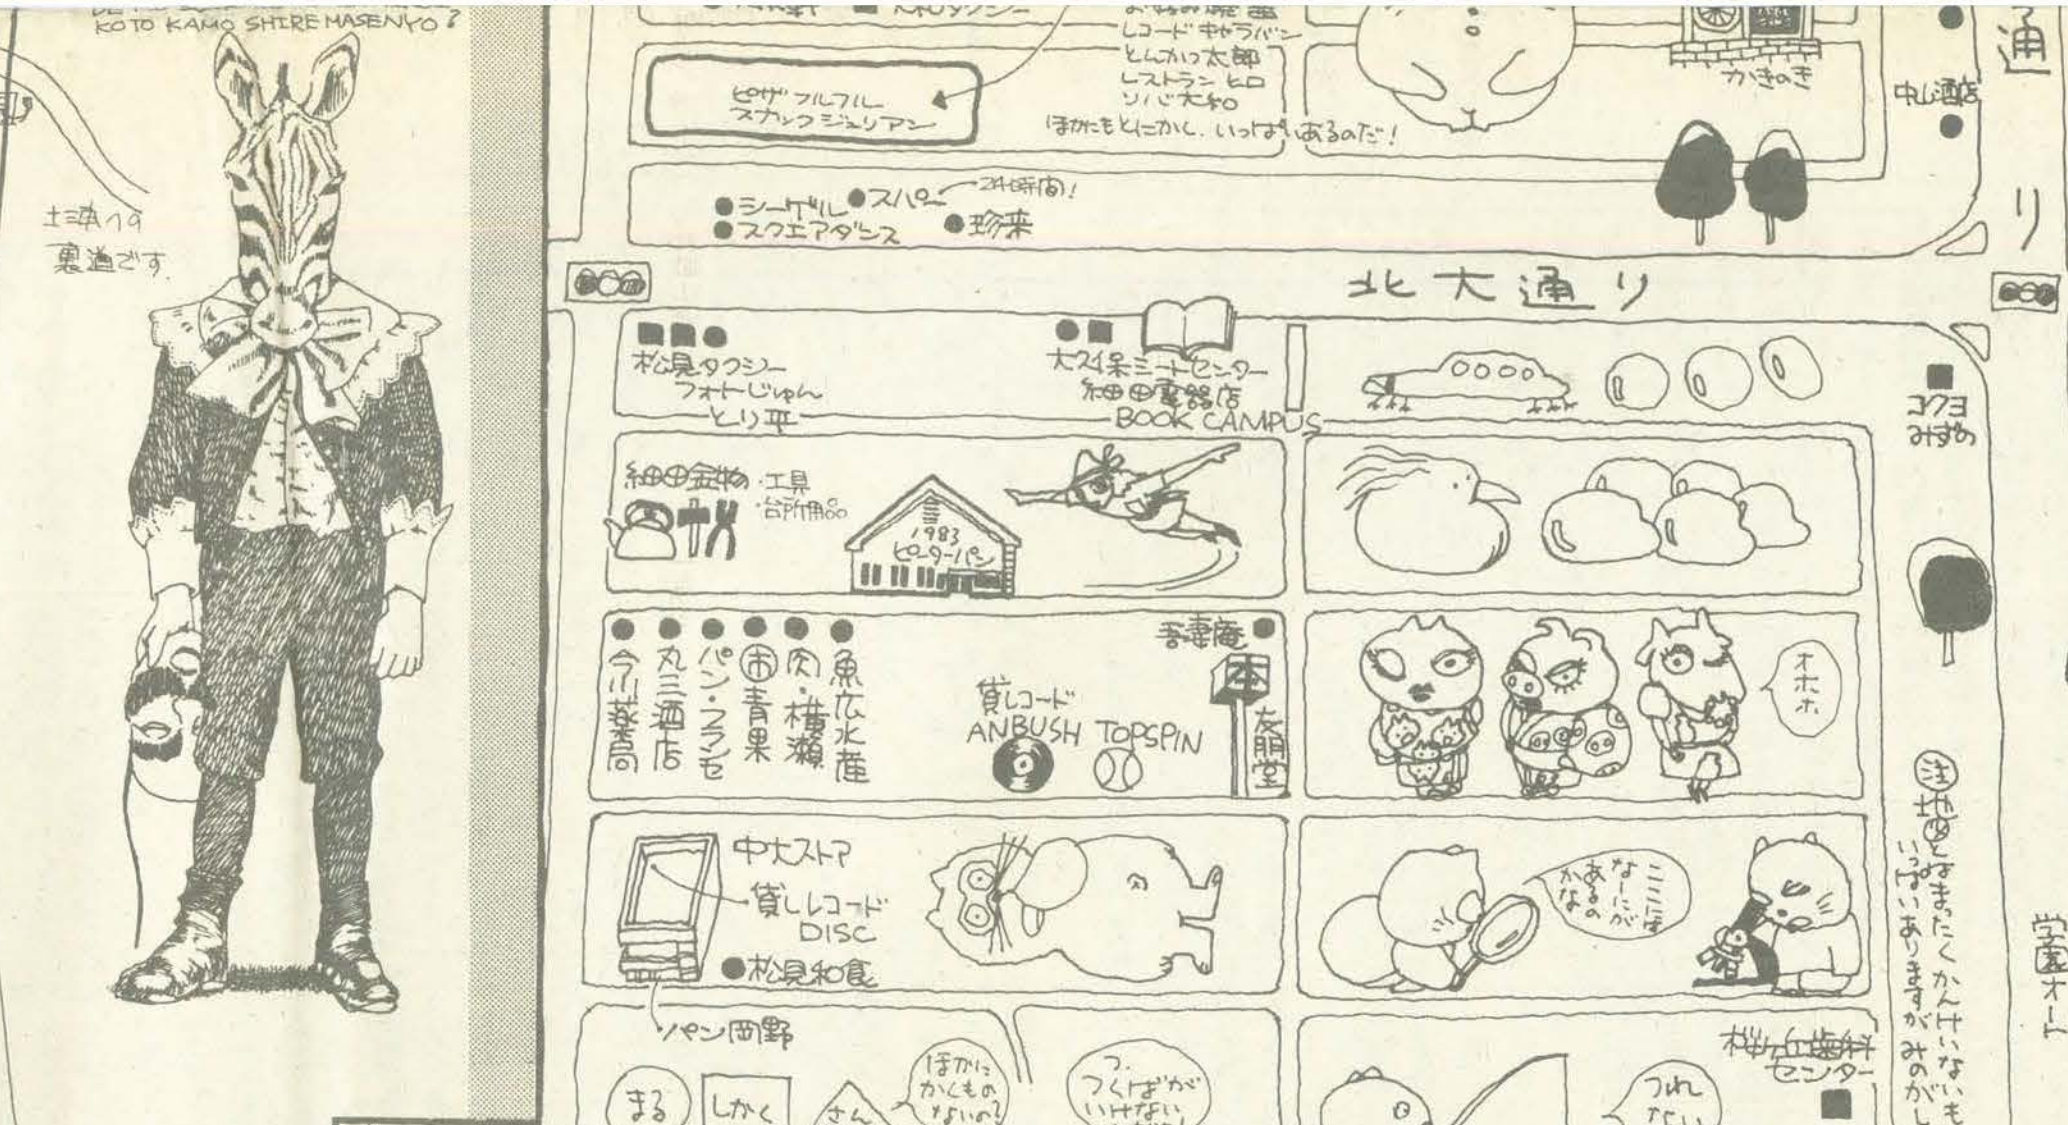 KOTO KAMO SHIREMASENYO?
土浦への
裏道です。
レコード キャラバン
とんかつ太郎
レストラン ヒロ
ソバ大和
ほかにもとにかく、いっぱいあるのだ!
ピザ フルフル
スナック ジュリアン
かきのき
中山酒店
通り
シーゲル
スパー
24時間!
スクエアダンス
珍来
北大通り
松見タクシー
フォトじゅん
とり平
大久保ミートセンター
細田電器店
BOOK CAMPUS
コクヨ
みずの
細田金物
・工具
・台所用品
1983
ピーターパン
今川薬局
丸三酒店
パン・フランセ
市青果
肉・横瀬
魚広水産
吾妻庵
貸レコード
ANBUSH
TOPSPIN
本
友朋堂
オホホホ
中大ストア
貸しレコード
DISC
松見和食
パン岡野
ここには
なーにが
あるの
かな
注
地図とはまったくかんけいないも
いっぱいありますがみのがし
学園オート
まる
しかく
さん
ほかに
かくもの
ないの?
つ、
つくばが
いけない
桜ヶ丘歯科
センター
つれ
ない